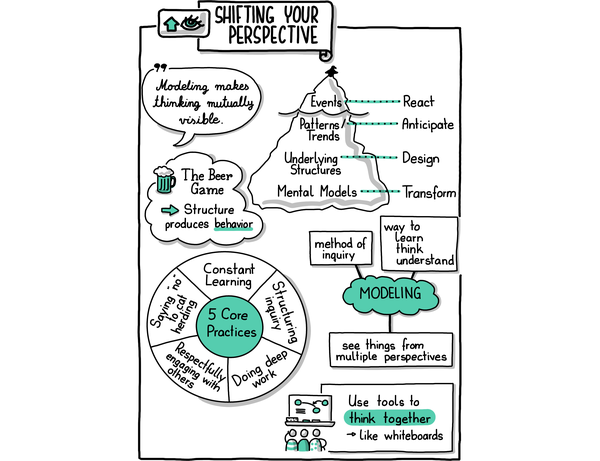 SHIFTING YOUR
PERSPECTIVE
"
Modeling makes
thinking mutually
visible.
Events
React
Patterns/
Trends
Anticipate
Underlying
Structures
Design
Mental Models
Transform
The Beer
Game
→ Structure
produces behavior
method of
inquiry
way to
learn
think
understand
MODELING
see things from
multiple perspectives
5 Core
Practices
Constant
Learning
Structuring
inquiry
Doing deep
work
Respectfully
engaging with
others
Saying "no"
to cat
herding
Use tools to
think together
→ like whiteboards